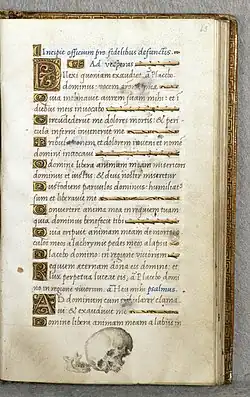 Incipit officium pro fidelibus defunctis.
Ad vesperas
ilexi quoniam exaudiet: a Placebo
dominus: vocem
Quia inclinavit aurem suam mihi: et i
diebus meis invocabo
Circundederunt me dolores mortis: et peri
cula inferni invenerunt me
Tribulationem et dolorem inveni et nomen
domini invocavi
O domine libera animam meam misericors
dominus et iustus: et deus noster miseretur
Custodiens parvulos dominus: humiliatus
sum et liberavit me
Convertere anima mea in requiem tuam
quia dominus benefecit tibi
Quia eripuit animam meam de morte
oculos meos a lachrymis pedes meos a lapsu
Placebo domino: in regione vivorum
Requiem aeternam dona eis domine: et
lux perpetua luceat eis. a Placebo domi
no in regione vivorum. a Heu mihi psalmus.
AD dominum cum tribularer clama
vi: et exaudivit me
Domine libera animam meam a labiis in